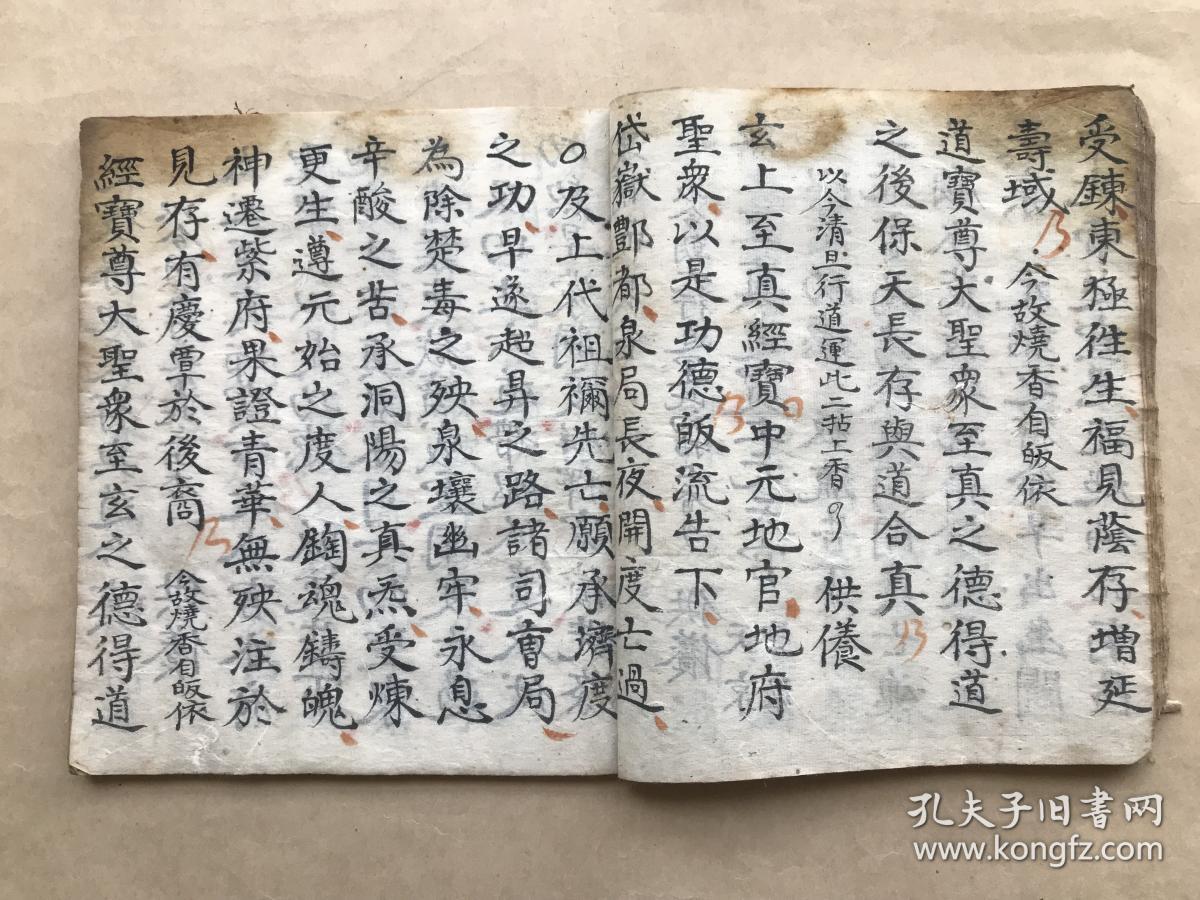 受鍊東極徃生福見蔭存增延
壽域乃今故燒香自皈依
道寶尊大聖衆至真之德得道
之後保天長存與道合真乃
以今清旦行道運此二拈上香 供養
玄上至真經寶中元地官地府
聖衆以是功德皈流告下乃
岱嶽酆都泉局長夜開度亡過
○及上代祖禰先亡願承濟度
之功早遂超昇之路諸司曹局
為除楚毒之殃泉壤幽牢永息
辛酸之苦承洞陽之真炁受煉
更生遵元始之度人鞫魂鑄魄
神遷紫府果證青華無殃注於
見存有慶覃於後裔乃今故燒香自皈依
經寶尊大聖衆至玄之德得道
孔夫子旧书网
www.kongfz.com